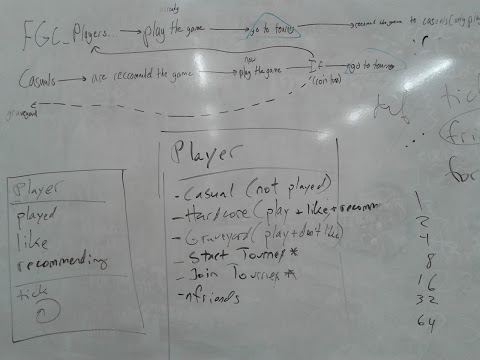 already
FGC_Players... → play the game → go to tourneys → recommend the game to casuals (only play
Casuals → are reccomuld the game → play the game → If → go to tourneys
now
(coin toss)
graveyard
tick
for
Player
played
like
recommending
tick
Player
- Casual (not played)
- Hardcore (play + like + recomm
- Graveyard (play + don't like)
- Start Tourney *
- Join Tourney *
- nfriends
1
2
4
8
16
32
64